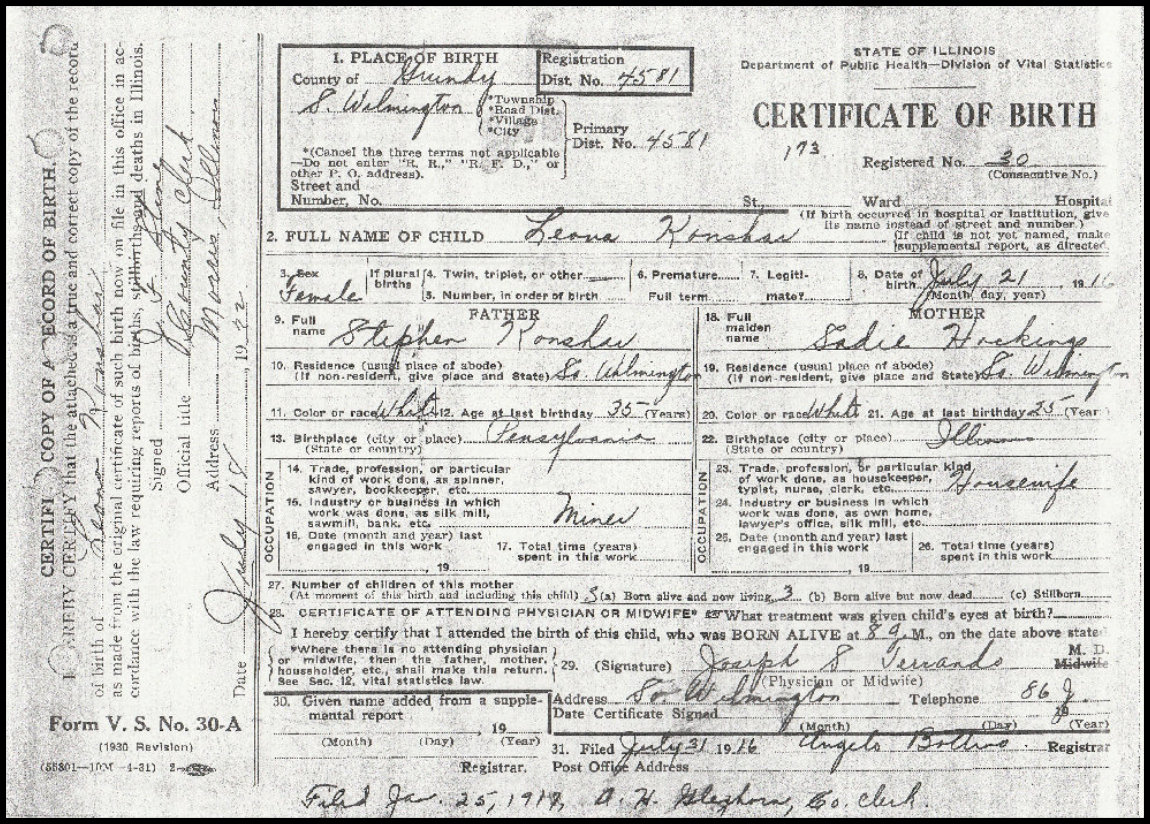 CERTIFI COPY OF A ECORD OF BIRTH
I EREBY CERTIFY that the attached is a true and correct copy of the record
of birth of Leona Konshar
as made from the original certificate of such birth now on file in this office in ac-
cordance with the law requiring reports of births, stillbirths and deaths in Illinois.
Signed
Official title County Clerk
Address Morris, Illinois
Date July 18, 19
Form V. S. No. 30-A
(1930 Revision)
(55301—10M -4-31) 2
STATE OF ILLINOIS
Department of Public Health—Division of Vital Statistics
CERTIFICATE OF BIRTH
173
Registered No. 30
(Consecutive No.)
1. PLACE OF BIRTH
County of Grundy
Registration
Dist. No. 4581
S. Wilmington
*Township
*Road Dist.
*Village
*City
Primary
Dist. No. 4581
*(Cancel the three terms not applicable
—Do not enter "R. R.," "R. F. D.," or
other P. O. address).
Street and
Number, No. St., Ward Hospital
(If birth occurred in hospital or institution, give
its name instead of street and number.)
2. FULL NAME OF CHILD Leona Konshar
(If child is not yet named, make
supplemental report, as directed.
3. Sex
Female
If plural
births
4. Twin, triplet, or other
5. Number, in order of birth
6. Premature
Full term
7. Legiti-
mate?
8. Date of
birth July 21 1916
(Month, day, year)
FATHER
9. Full
name Stephen Konshar
10. Residence (usual place of abode)
(If non-resident, give place and State) So. Wilmington
11. Color or race White 12. Age at last birthday 35 (Years)
13. Birthplace (city or place) Pensylvania
(State or country)
OCCUPATION
14. Trade, profession, or particular
kind of work done, as spinner,
sawyer, bookkeeper, etc.
15. Industry or business in which
work was done, as silk mill,
sawmill, bank, etc. Miner
16. Date (month and year) last
engaged in this work
, 19
17. Total time (years)
spent in this work
MOTHER
18. Full
maiden
name Sadie Hockings
19. Residence (usual place of abode)
(If non-resident, give place and State) So. Wilmington
20. Color or race White 21. Age at last birthday 25 (Year
22. Birthplace (city or place) Illinois
(State or country)
OCCUPATION
23. Trade, profession, or particular kind
of work done, as housekeeper,
typist, nurse, clerk, etc. Housewife
24. Industry or business in which
work was done, as own home,
lawyer's office, silk mill, etc.
25. Date (month and year) last
engaged in this work
, 19
26. Total time (years)
spent in this work
27. Number of children of this mother
(At moment of this birth and including this child) 3 (a) Born alive and now living 3 (b) Born alive but now dead (c) Stillborn
28. CERTIFICATE OF ATTENDING PHYSICIAN OR MIDWIFE* What treatment was given child's eyes at birth?
I hereby certify that I attended the birth of this child, who was BORN ALIVE at 8 M., on the date above stated
*Where there is no attending physician
or midwife, then the father, mother,
householder, etc., shall make this return.
See Sec. 12, vital statistics law.
29. (Signature) Joseph S Ferrando M. D.
Midwife
(Physician or Midwife)
Address So Wilmington Telephone 86 J
Date Certificate Signed 19
(Month) (Day) (Year)
30. Given name added from a supple-
mental report
, 19
(Month) (Day) (Year)
Registrar.
31. Filed July 31 1916 Angelo Bollino Registrar
Post Office Address
Filed Jan. 25, 1917, A. H. Gleghorn, Co. Clerk.